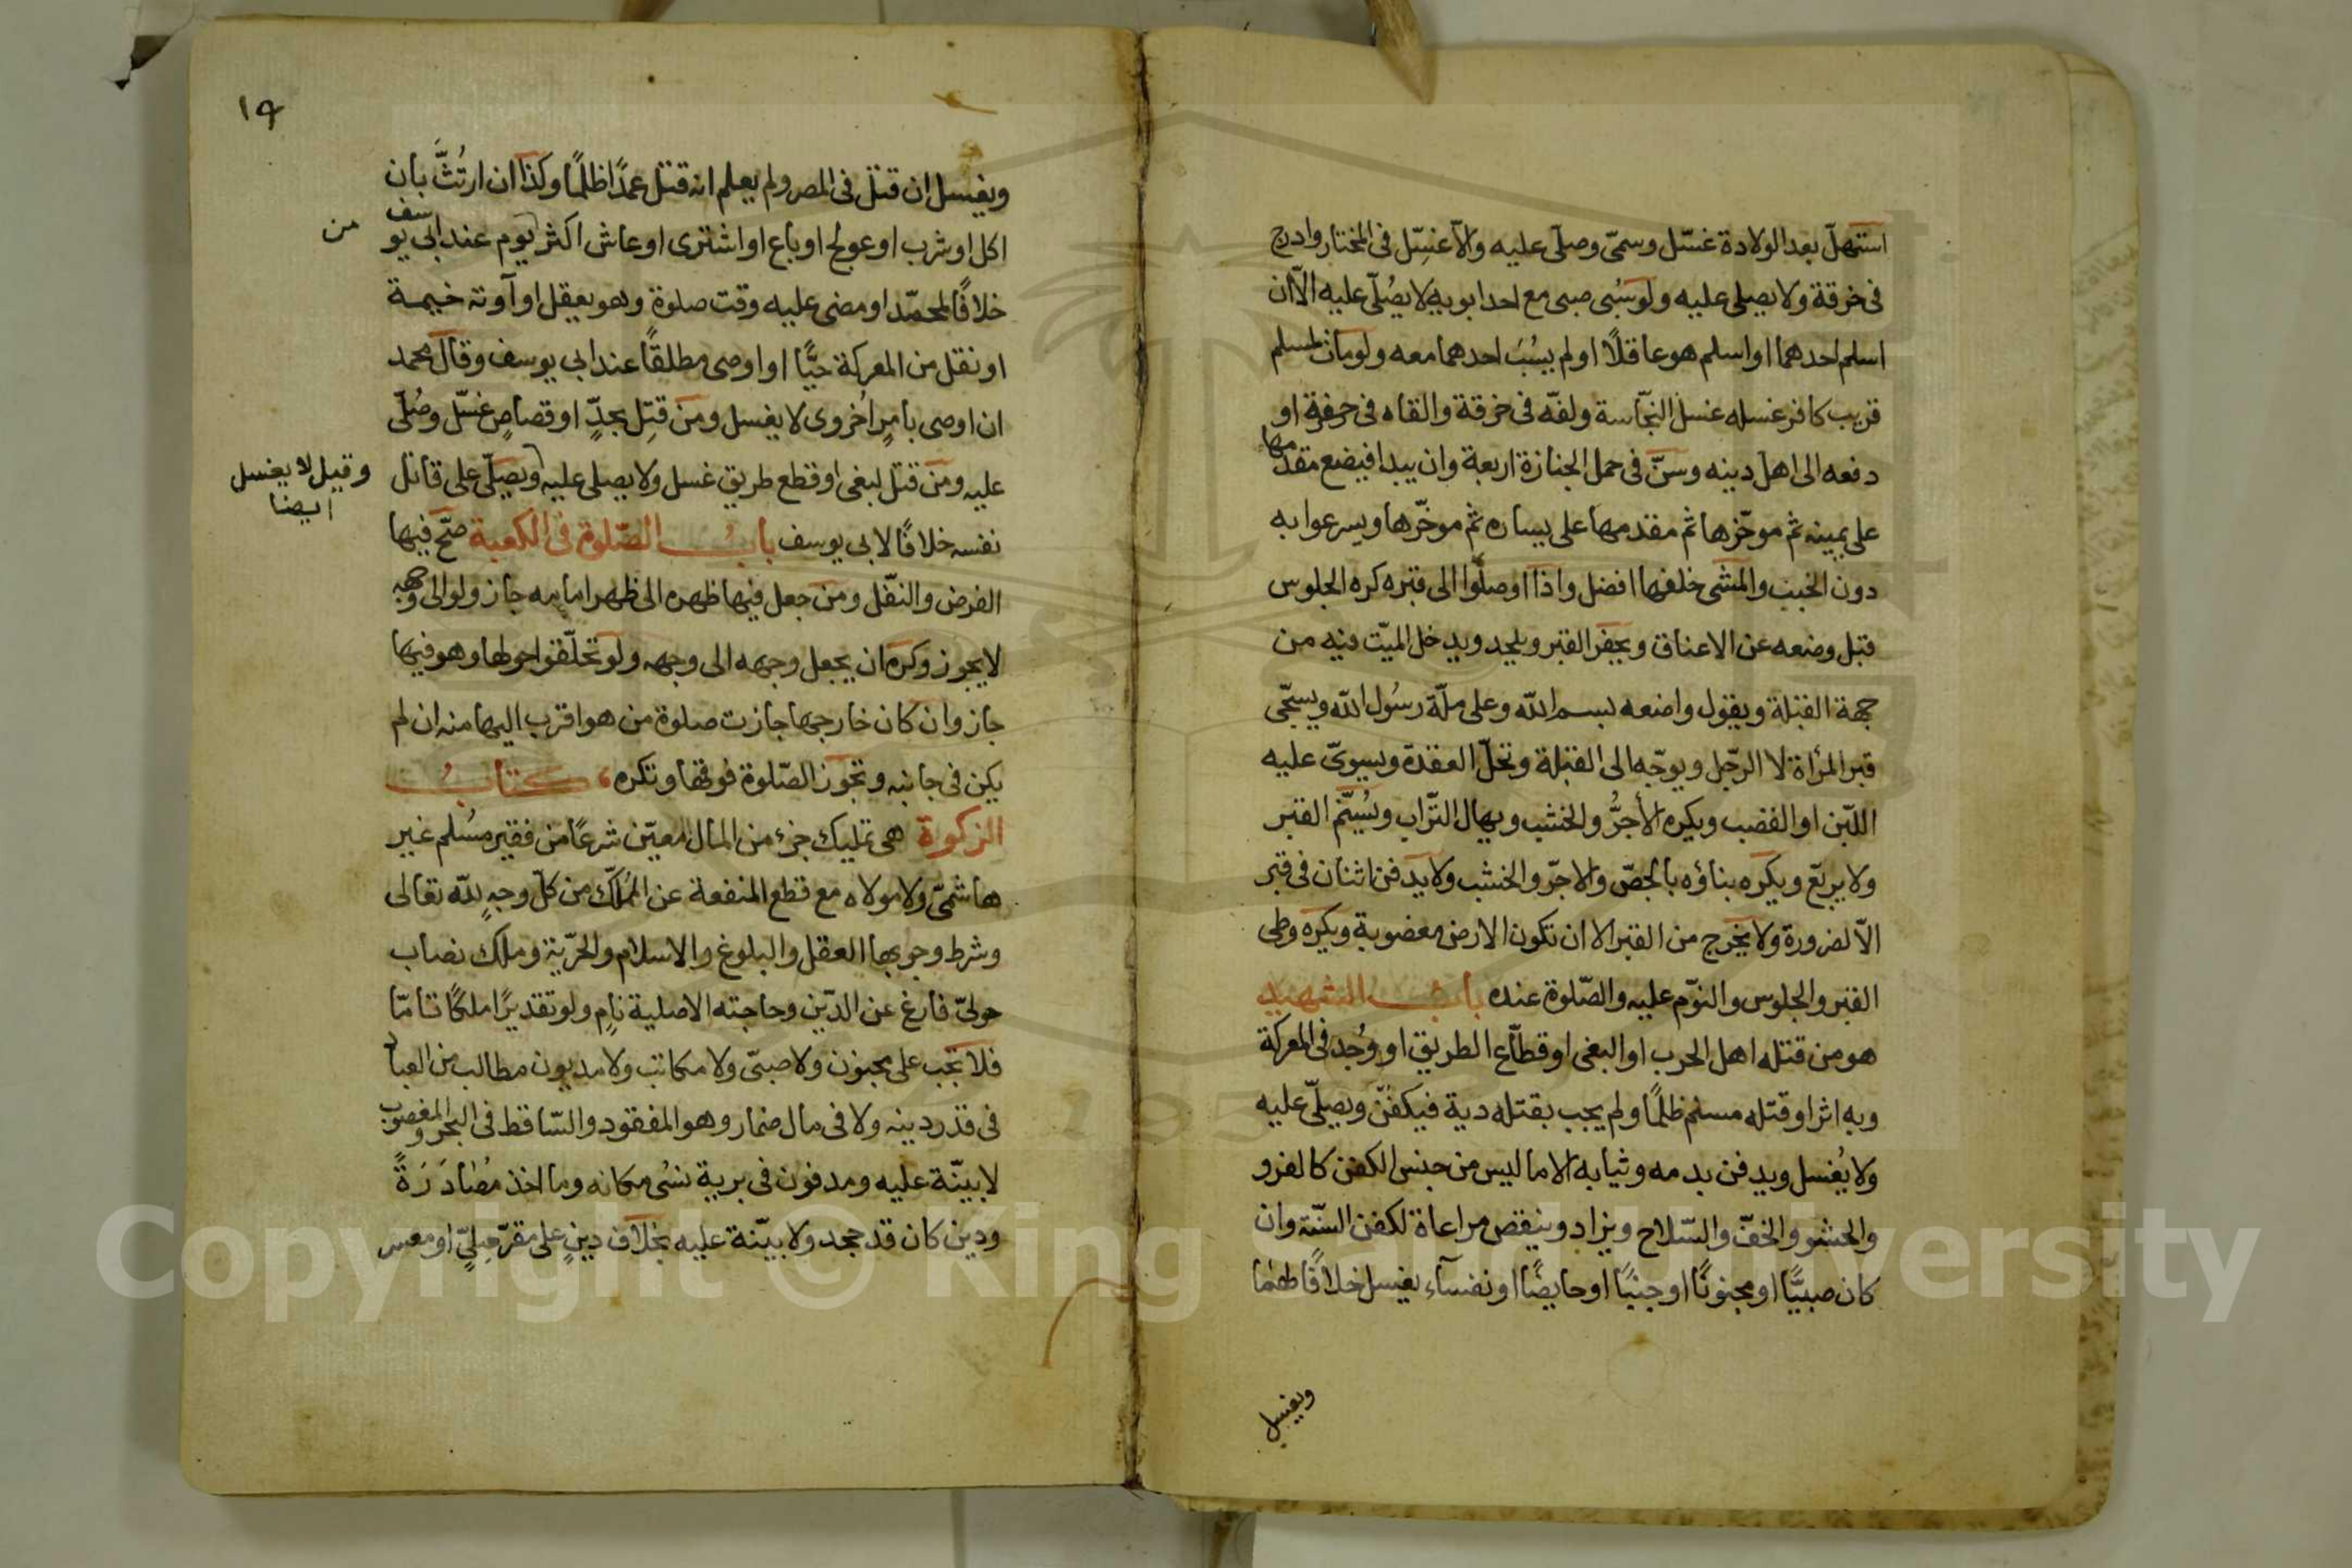 استهلّ بعد الولادة غسّل وسمّى وصلّى عليه والّا غسّل فى المختار وادرج
فى خرقة ولا يصلى عليه ولو سُبى صبى مع احد ابويه لا يُصلّى عليه الّا ان
اسلم احدهما او اسلم هو عاقلًا او لم يسُبَ احدهما معه ولو مات لمسلم
قريب كافر غسله غسل النجّاسة ولفّه فى خرقة والقاه فى حفرة او
دفعه الى اهل دينه وسنّ فى حمل الجنازة اربعة وان يبدا فيضع مقدمها
على يمينه ثم موخّرها ثم مقدمها على يساره ثم موخّرها ويسرعوا به
دون الخبب والمشى خلفها افضل واذا اوصلّوا الى قبره كره الجلوس
قبل وضعه عن الاعناق ويحفر القبر ويلحد ويدخل الميّت فيه من
جهة القبلة ويقول واضعه بسم الله وعلى ملّة رسُول الله ويسجّى
قبر المرأة لا الرجّل ويوجّه الى القبلة وتحلّ العقدة ويسوىّ عليه
اللبّن او القضب ويكره الأجرُّ والخشب ويهال التّراب ويُسنّم القبر
ولا يربّع ويكره بناؤه بالجصّ والاجرّ والخشب ولا يدفن اثنان فى قبر
الّا لضرورة ولا يخرج من القبر الا ان تكون الارض مغضوبة ويكره وطى
القبر والجلوس والنوّم عليه والصّلوة عنده باب الشهيد
هو من قتله اهل الحرب او البغى او قطّاع الطريق او وُجد فى المعركة
وبه اثر او قتله مسلم ظلمًا ولم يجب بقتله دية فيكفنّ ويصلّى عليه
ولا يُغسل ويدفن بدمه وثيابه الا ما ليس من جنس الكفن كالفرو
والحشو والخفّ والسّلاح ويزاد وينقص مراعاة لكفن السنّة وان
كان صبيًّا او مجنونًا او جنبًا او حايضًا او نفسآء يغسل خلافًا لهما
ويغسل
١٩
ويغسل ان قتل فى المصر ولم يعلم انه قتل عمدًا ظلمًا وكذا ان ارتُثَّ بان
اكل او شرب او عولج او باع او اشترى او عاش اكثر يوم عند ابى يوسف
من
خلافًا لمحمّد او مضى عليه وقت صلوة وهو يعقل او آوته خيمة
او نقل من المعركة حيًّا او اوصى مطلقًا عند ابى يوسف وقال محمد
ان اوصى بامرٍ اُخروى لا يغسل ومن قتِل بحدٍّ او قصاصٍ غسّل وصُلّى
عليه ومن قتل لبغى او قطع طريق غسل ولا يصلى عليه ويصلّى على قاتل
وقيل لا يغسل
ايضا
نفسه خلافًا لابى يوسف بابُ الصّلوة فى الكعبة صحّ فيها
الفرض والنفّل ومن جعل فيها ظهره الى ظهر امامه جاز ولو الى وجهه
لا يجوز وكره ان يجعل وجهه الى وجهه ولو تحلّقوا حولها وهو فيها
جاز وان كان خارجها جازت صلوة من هو اقرب اليها منه ان لم
يكن فى جانبه وتجوز الصّلوة فوقها وتكره، كتابُ
الزكوة هى تمليك جزء من المال معيّن شرعًا من فقير مسُلم غير
هاشمىّ ولا مولاه مع قطع المنفعة عن المُملّك من كلّ وجهٍ لله تعالى
وشرط وجوبها العقل والبلوغ والاسلام والحرّية وملك نصاب
حولىّ فارغ عن الدّين وحاجته الاصلية نامٍ ولو تقديرًا ملكًا تامّا
فلا تجب على مجنون ولا صبىّ ولا مكاتب ولا مديون مطالب من العباد
فى قدر دينه ولا فى مال ضمار وهو المفقود والسّاقط فى البحر والمغصوب
لا بينّة عليه ومدفون فى برية نسُى مكانه وما اخذ مُصادَرَةً
ودين كان قد جحد ولا بيّنة عليه بخلاف دينٍ على مقرّ مِلىٍّ او معسر
Copyright © King Saud University